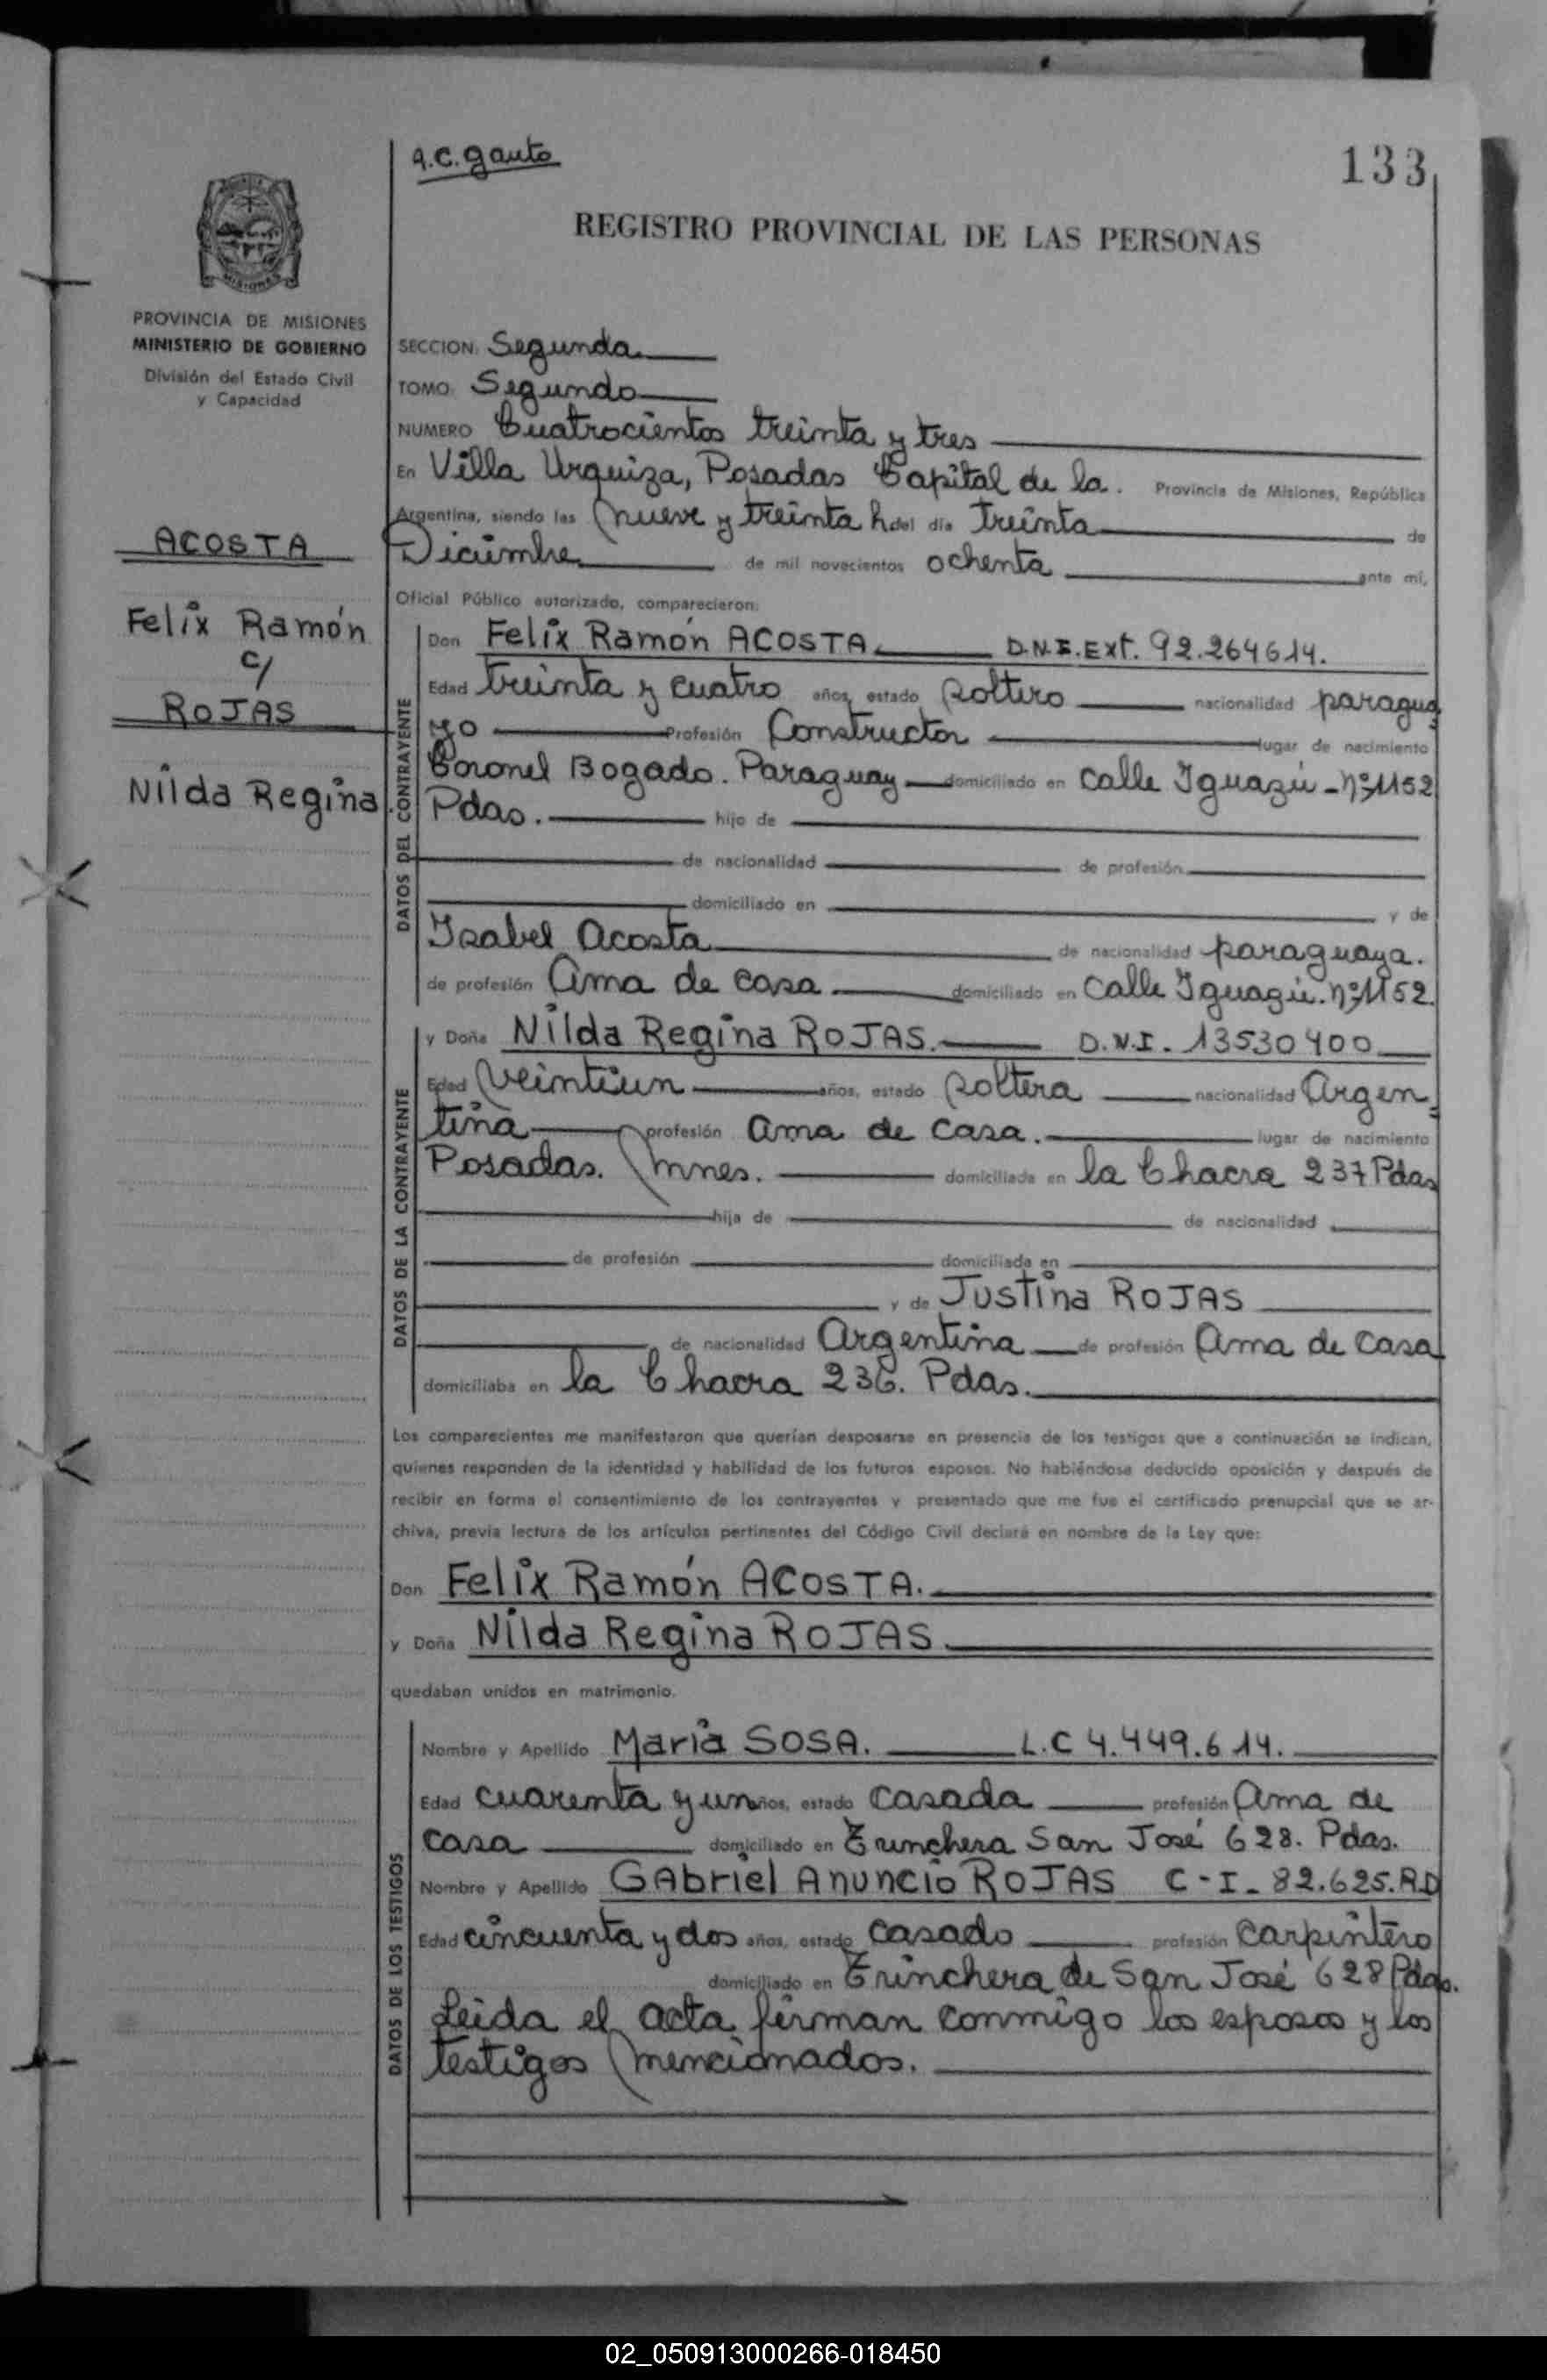 a.c. gauto
133
REGISTRO PROVINCIAL DE LAS PERSONAS
MISIONES
PROVINCIA DE MISIONES
MINISTERIO DE GOBIERNO
División del Estado Civil
y Capacidad
ACOSTA
Felix Ramón
c/
ROJAS
Nilda Regina.
SECCION: Segunda
TOMO: Segundo
NUMERO Cuatrocientos treinta y tres
En Villa Urquiza, Posadas Capital de la. Provincia de Misiones, República
Argentina, siendo las nueve y treinta h del día treinta de
Diciembre de mil novecientos ochenta ante mí,
Oficial Público autorizado, comparecieron:
DATOS DEL CONTRAYENTE
Don Felix Ramón ACOSTA. D.N.I. Ext. 92.264614.
Edad treinta y cuatro años, estado soltero nacionalidad paragua
yo Profesión Constructor lugar de nacimiento
Coronel Bogado. Paraguay domiciliado en calle Iguazú - nº 1152
Pdas. hijo de
de nacionalidad de profesión
domiciliado en y de
Isabel Acosta de nacionalidad paraguaya.
de profesión Ama de casa domiciliado en calle Iguazú. nº 1152.
DATOS DE LA CONTRAYENTE
y Doña Nilda Regina ROJAS. D.N.I. 13530400
Edad veintiun años, estado soltera nacionalidad Argen=
tina profesión ama de casa. lugar de nacimiento
Posadas. Mnes. domiciliada en la Chacra 237 Pdas
hija de de nacionalidad
de profesión domiciliada en
y de Justina ROJAS
de nacionalidad Argentina de profesión Ama de casa
domiciliaba en la Chacra 236. Pdas.
Los comparecientes me manifestaron que querían desposarse en presencia de los testigos que a continuación se indican,
quienes responden de la identidad y habilidad de los futuros esposos. No habiéndose deducido oposición y después de
recibir en forma el consentimiento de los contrayentes y presentado que me fue el certificado prenupcial que se ar-
chiva, previa lectura de los artículos pertinentes del Código Civil declaré en nombre de la Ley que:
Don Felix Ramón ACOSTA.
y Doña Nilda Regina ROJAS
quedaban unidos en matrimonio.
DATOS DE LOS TESTIGOS
Nombre y Apellido María SOSA. L.C 4.449.614.
Edad cuarenta y un años, estado casada profesión Ama de
casa domiciliado en Trinchera San José 628. Pdas.
Nombre y Apellido GAbriel Anuncio ROJAS C-I- 82.625.R.D
Edad cincuenta y dos años, estado casado profesión carpintero
domiciliado en Trinchera de San José 628 Pdas.
Leida el acta firman conmigo los esposos y los
testigos mencionados.
02_050913000266-018450